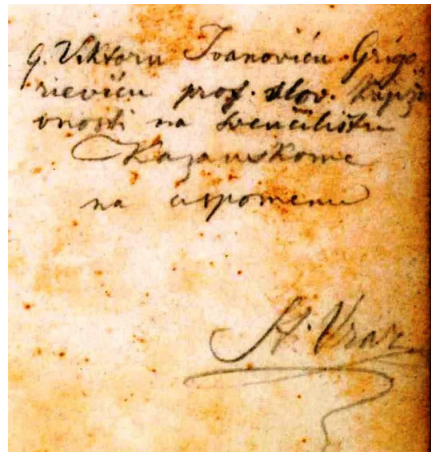 G. Viktoru Ivanoviću Grigo-
rieviću prof. slov. književ-
vnosti na sveučilištu
Kazanskome
na uspomenu
St. Vraz